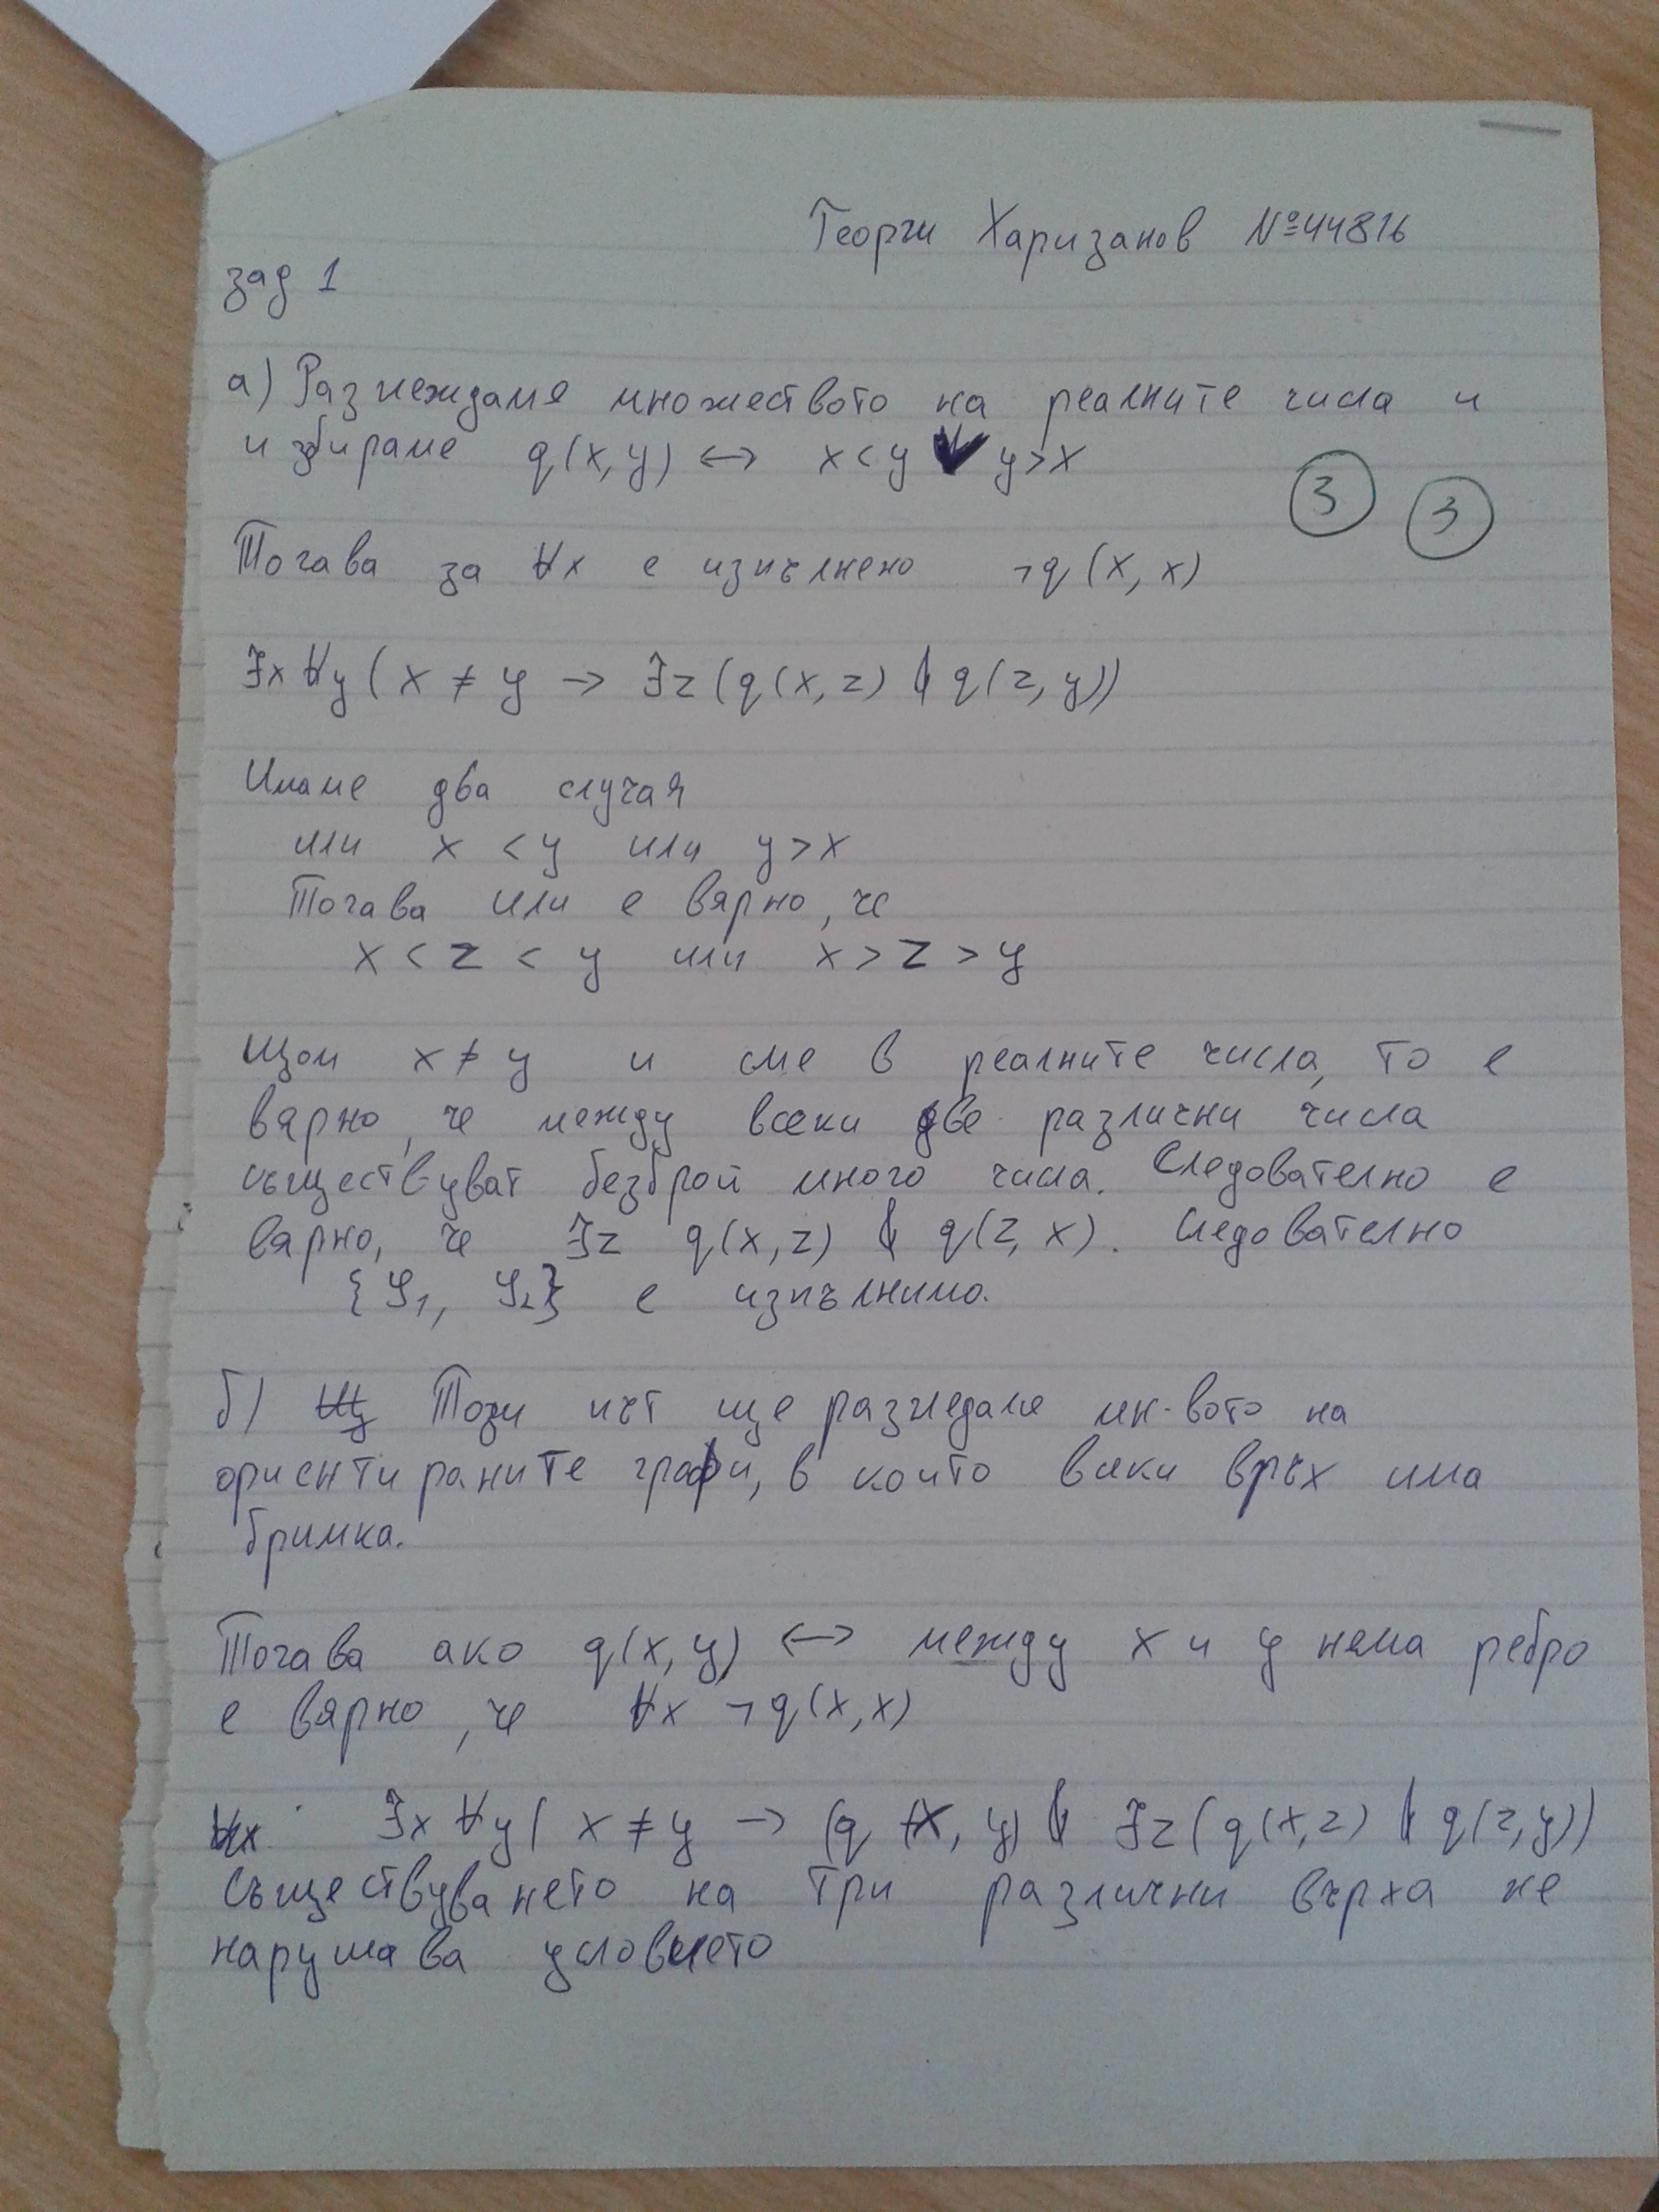 Георги Харизанов №44816
зад 1
а) Разглеждаме множеството на реалните числа и
избираме q(x,y) ↔ x<y ∨ y>x
3 3
Тогава за ∀x е изпълнено ¬q(x,x)
∃x∀y(x ≠ y → ∃z(q(x,z) & q(z,y))
Имаме два случая
или x < y или y > x
Тогава или е вярно, че
x < z < y или x > z > y
Щом x ≠ y и сме в реалните числа, то е
вярно, че между всеки две различни числа
съществуват безброй много числа. Следователно е
вярно, че ∃z q(x,z) & q(z,x). Следователно
{φ1, φ2} е изпълнимо.
б) Този път ще разгледаме мн-вото на
ориентираните графи, в които всеки връх има
бримка.
Тогава ако q(x,y) ↔ между x и y няма ребро
е вярно, че ∀x ¬q(x,x)
∃x∀y(x ≠ y → (q(x,y) & ∃z(q(x,z) & q(z,y))
Съществуването на три различни върха не
нарушава условието